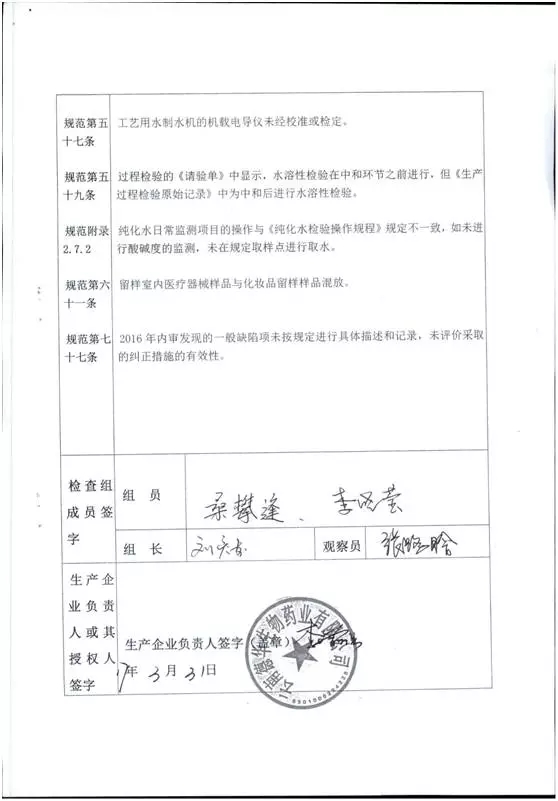 规范第五十七条
工艺用水制水机的机载电导仪未经校准或检定。
规范第五十九条
过程检验的《请验单》中显示，水溶性检验在中和环节之前进行，但《生产
过程检验原始记录》中为中和后进行水溶性检验。
规范附录
2.7.2
纯化水日常监测项目的操作与《纯化水检验操作规程》规定不一致，如未进
行酸碱度的监测，未在规定取样点进行取水。
规范第六十一条
留样室内医疗器械样品与化妆品留样样品混放。
规范第七十七条
2016 年内审发现的一般缺陷项未按规定进行具体描述和记录，未评价采取
的纠正措施的有效性。
检查组
成员签
字
组 员
桑攀逢、
组 长
观察员
生产企
业负责
人或其
授权人
签字
生产企业负责人签字（盖章）
17年 3月 31日
云南德华生物药业有限公司